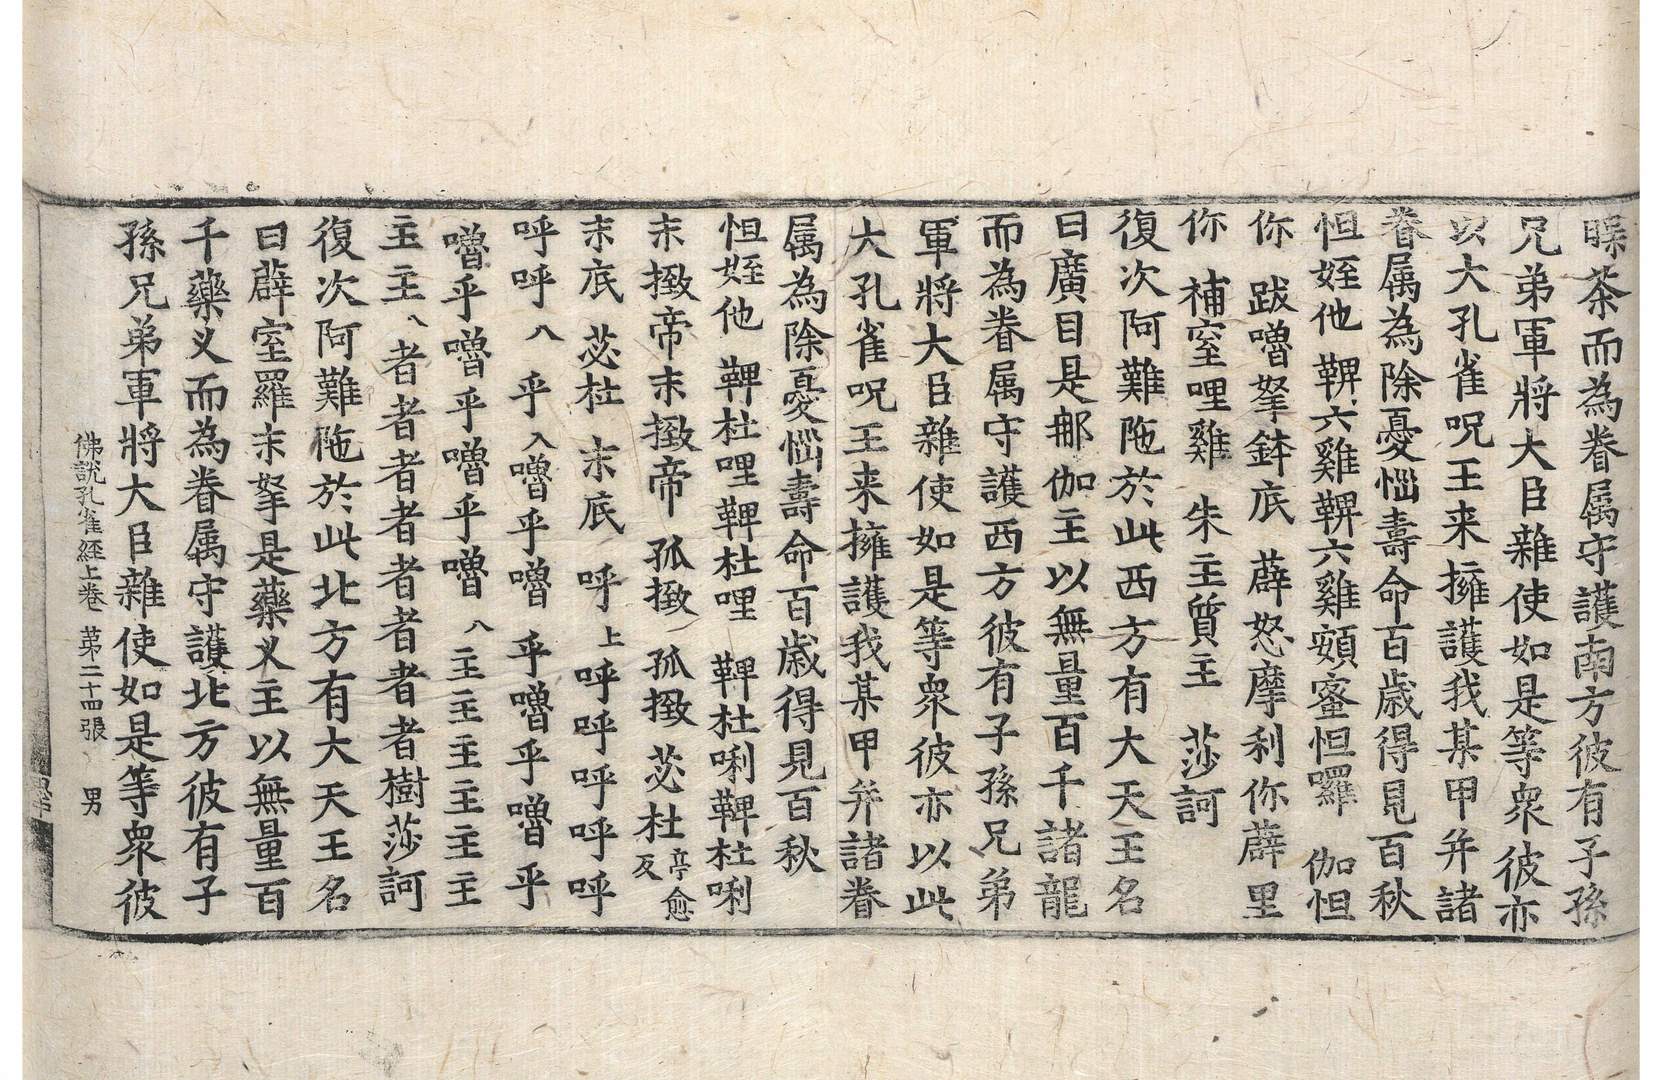 睩荼而為眷属守護南方彼有子孫
兄弟軍將大臣雜使如是等衆彼亦
以大孔雀呪王来擁護我某甲并諸
眷属為除憂惱壽命百歲得見百秋
怛姪他 鞞六雞鞞六雞頞蜜怛囉 伽怛
你 跋嚕拏鉢底 薜怒摩利你薜里
你 補窒哩雞 朱主質主 莎訶
復次阿難陁於此西方有大天王名
曰廣目是那伽主以無量百千諸龍
而為眷属守護西方彼有子孫兄弟
軍將大臣雜使如是等衆彼亦以此
大孔雀呪王来擁護我某甲并諸眷
属為除憂惱壽命百歲得見百秋
怛姪他 鞞杜哩鞞杜哩 鞞杜唎鞞杜唎
末㨖帝末㨖帝 孤㨖 孤㨖 苾杜亭愈反
末底 苾杜 末底 呼上呼呼呼呼呼
呼呼八 乎入嚕乎嚕 乎嚕乎嚕乎
嚕乎嚕乎嚕乎嚕八主主主主主
主主八者者者者者者者者樹莎訶
復次阿難陁於此北方有大天王名
曰薜室羅末拏是藥义主以無量百
千藥义而為眷属守護北方彼有子
孫兄弟軍將大臣雜使如是等衆彼
佛說孔雀經上卷 第二十四張 男